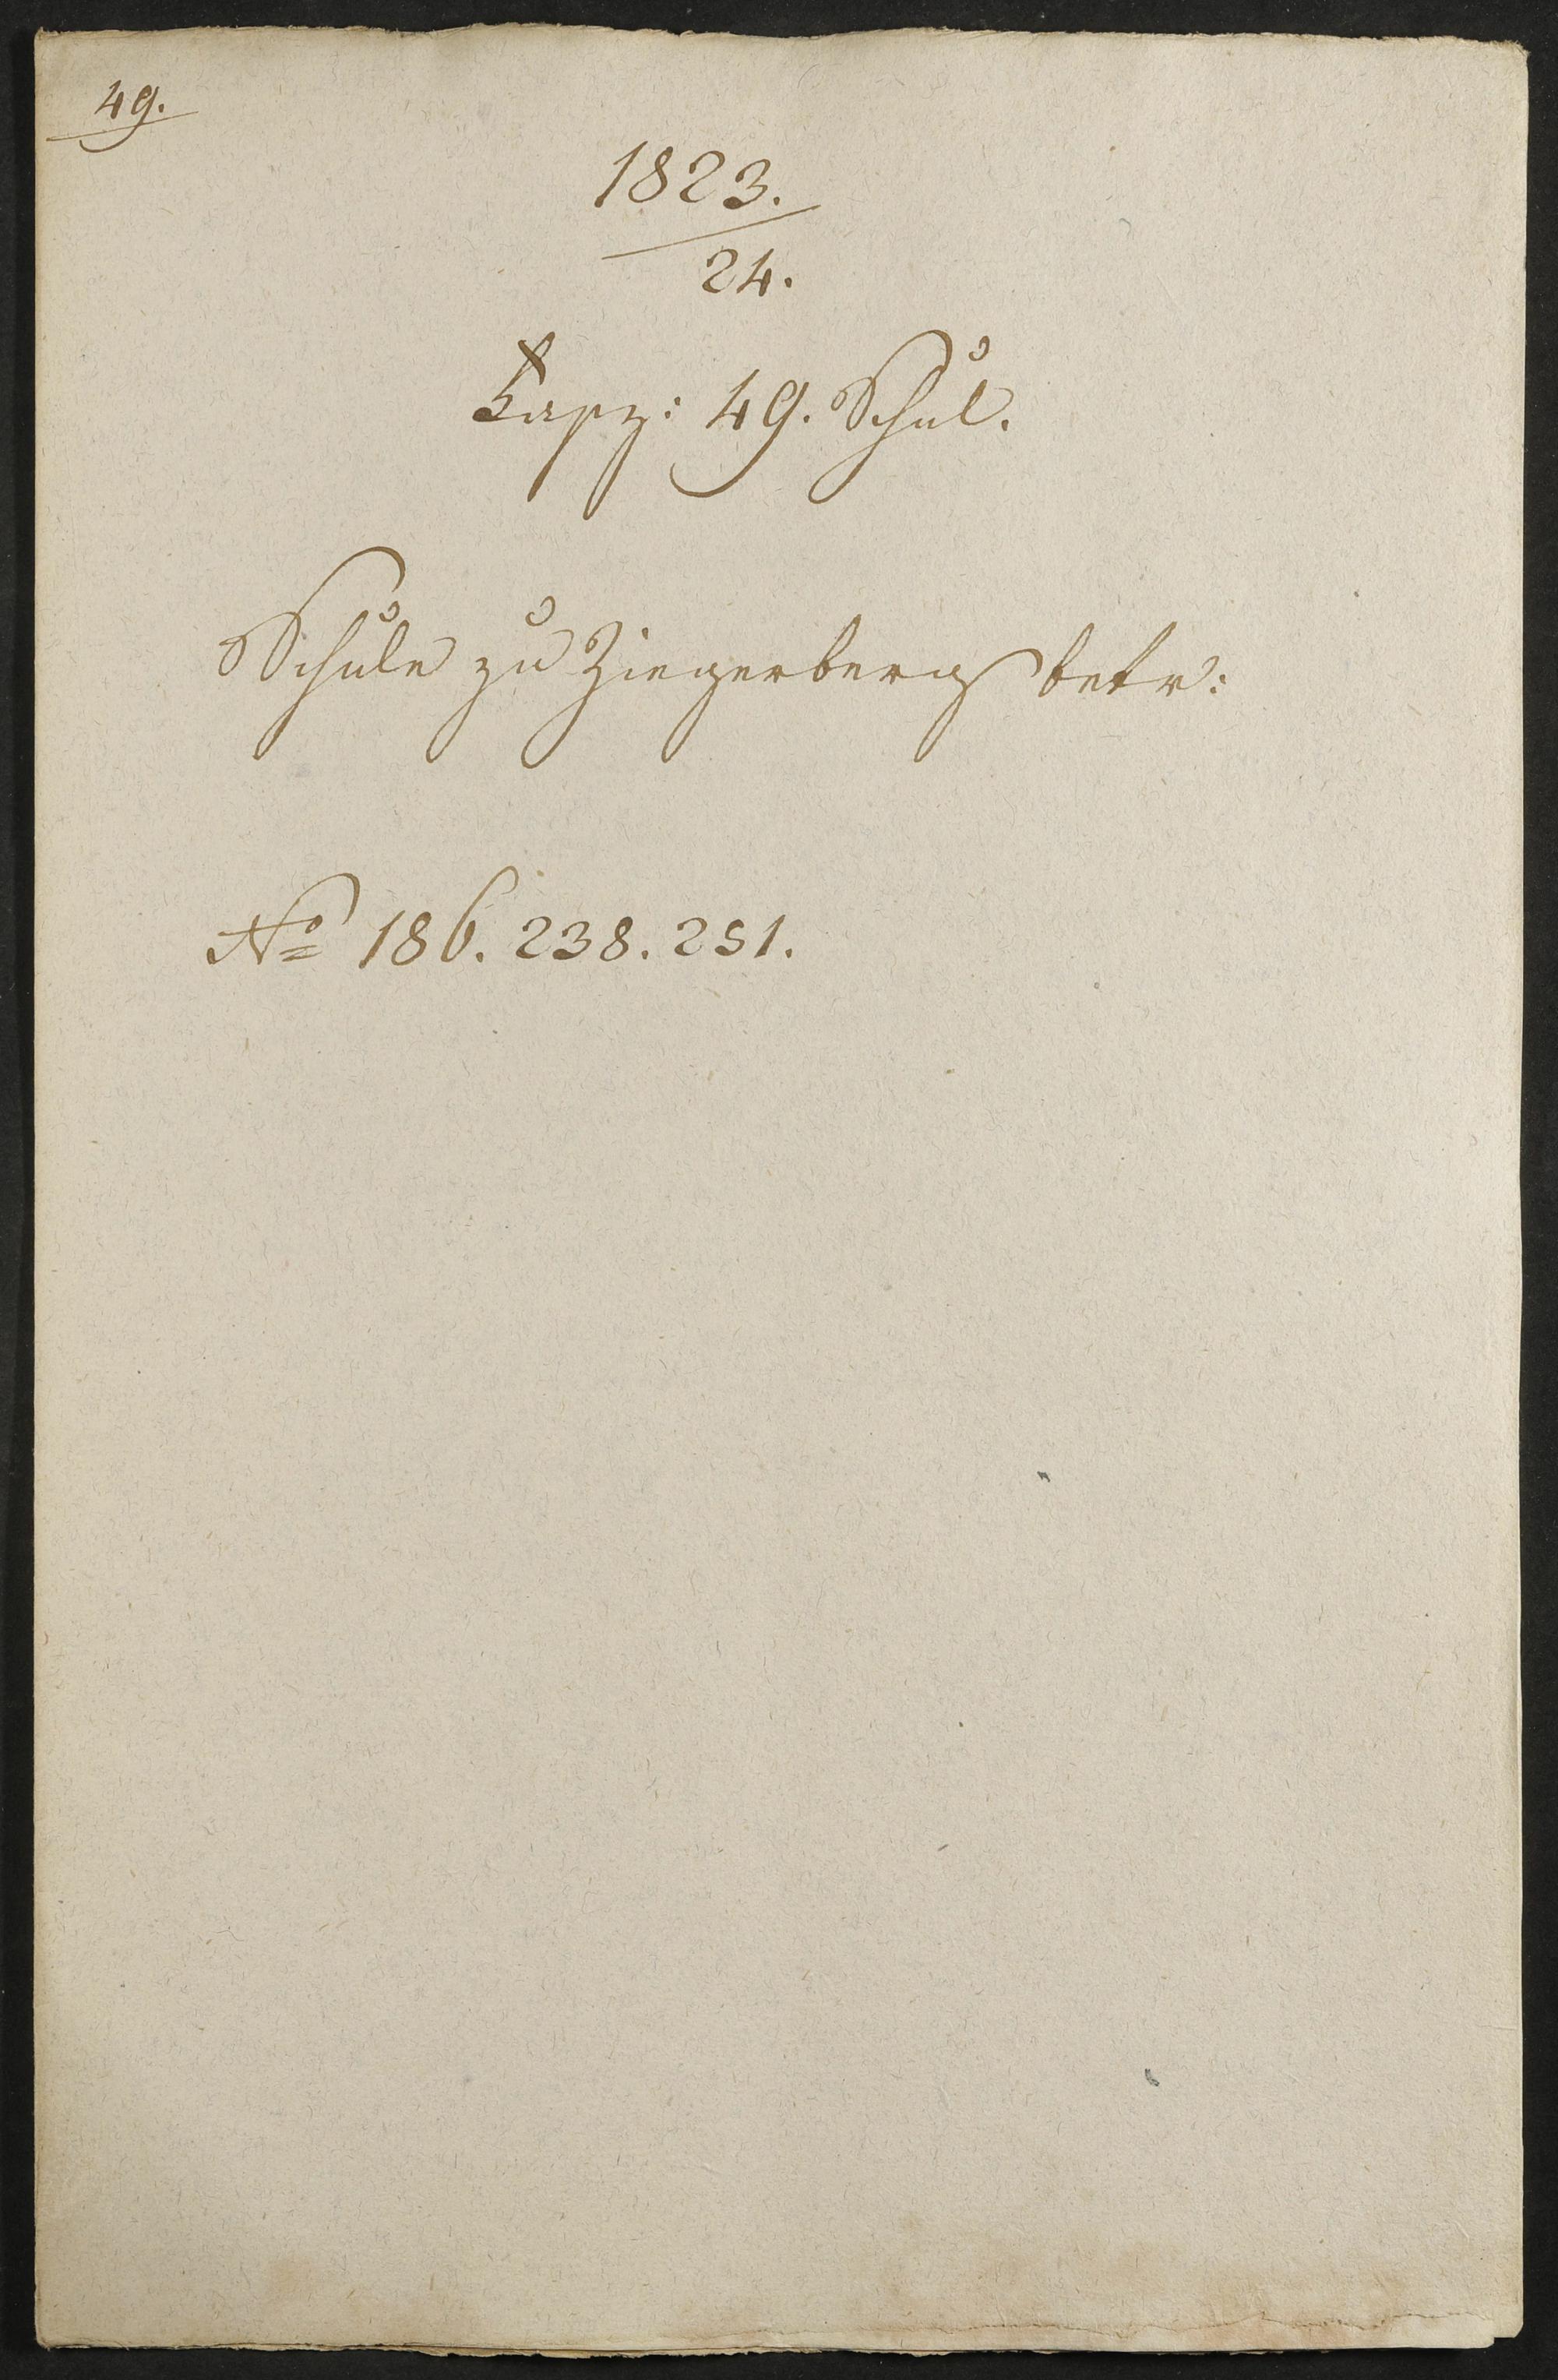 49.
1823.
24.
Fasz: 49. Schul.
Schule zu Ziegerberg betr:
No 186. 238. 251.